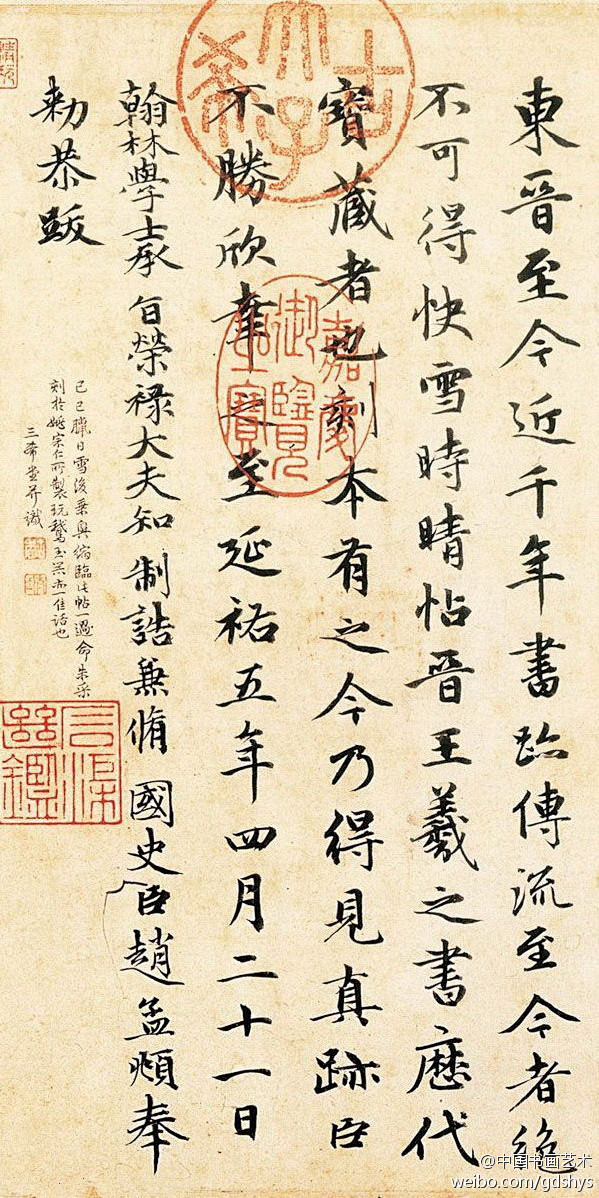 東晉至今近千年書跡傳流至今者絶
不可得快雪時晴帖晉王羲之書歷代
寶藏者也刻本有之今乃得見真跡臣
不勝欣幸之至延祐五年四月二十一日
翰林學士承旨榮祿大夫知制誥兼脩國史臣趙孟頫奉
勑恭跋
己巳臘日雪後乘興縮臨此帖一過命朱采
刻於姚宗仁所製玩鵞玉器亦一佳話也
三希堂并識
古希天子
嘉慶御覽之寶
石渠繼鑑
@中国书画艺术
weibo.com/gdshys